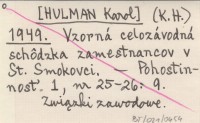 [HULMAN Karol] (K.H.)
1949. Vzorná celozávodná
schôdzka zamestnancov v
St. Smokovci. — Pohostin-
nosť. 1, nr 25-26: 9.
Związki zawodowe.